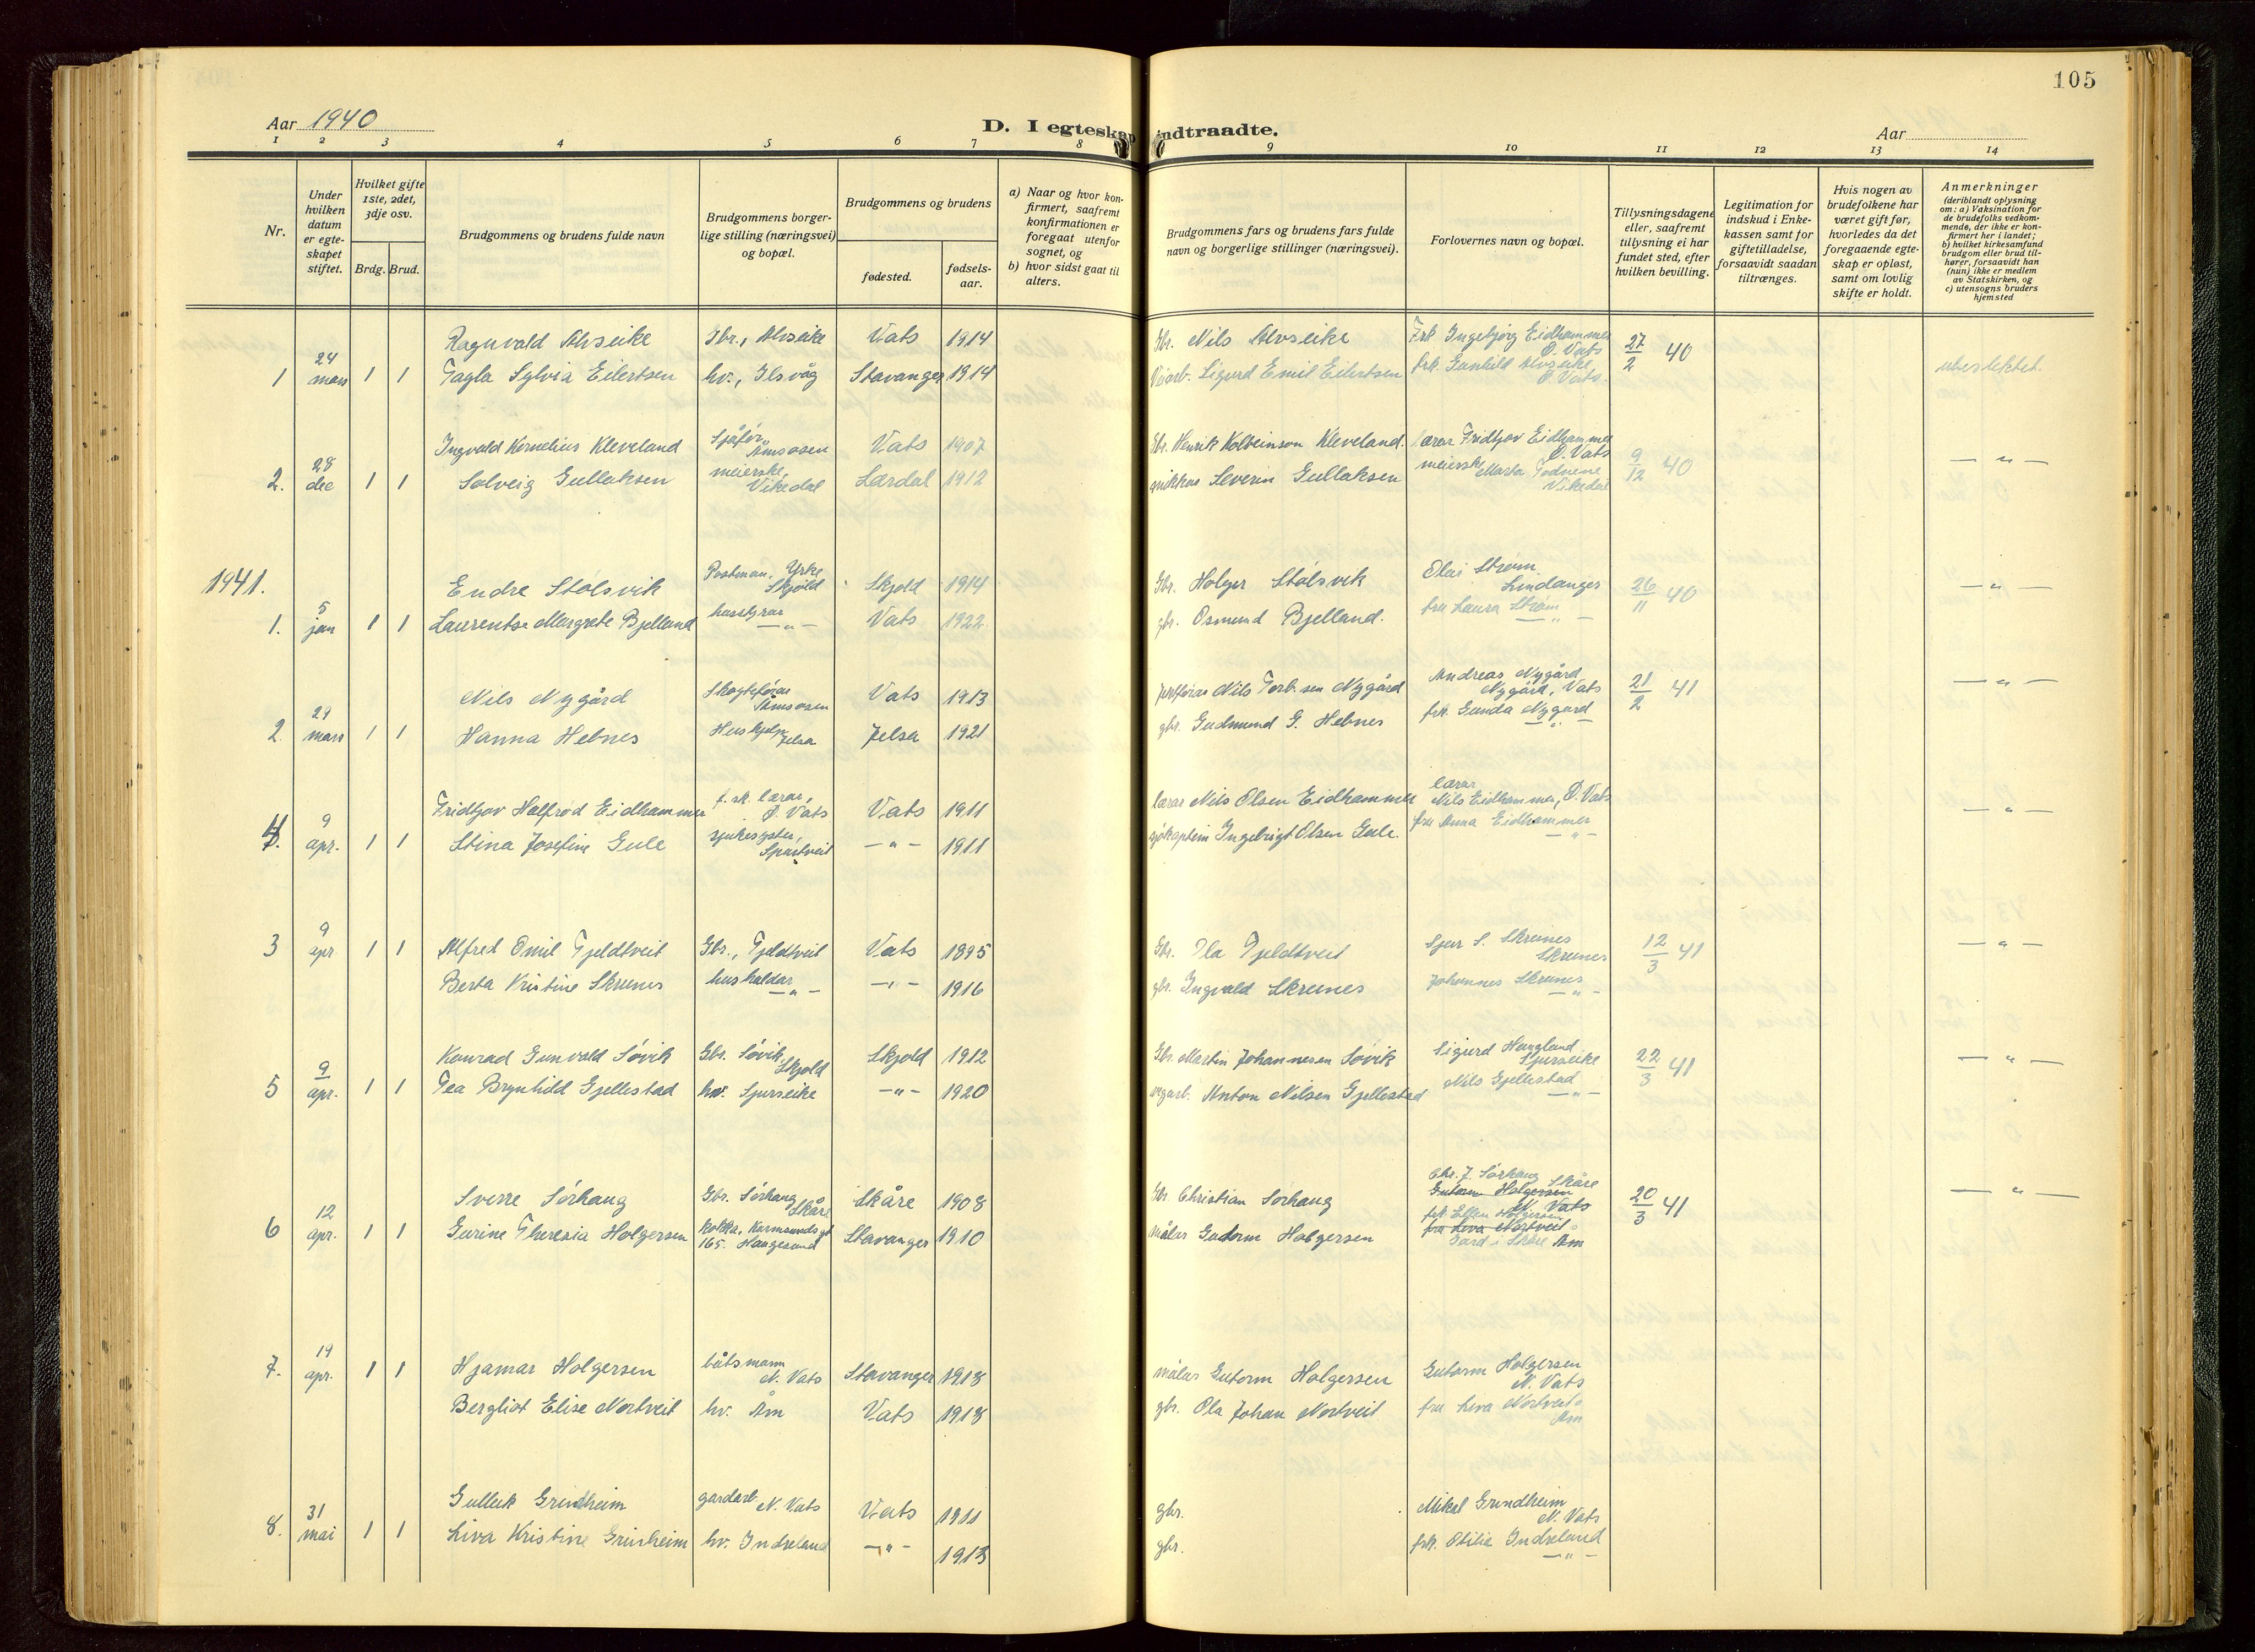 105
Aar 1940
D. I egteskap indtraadte.
Aar
1 2 3 4 5 6 7 8 9 10 11 12 13 14
Nr.
Under hvilken datum er egteskapet stiftet.
Hvilket gifte 1ste, 2det, 3dje osv.
Brdg. Brud.
Brudgommens og brudens fulde navn
Brudgommens borgerlige stilling (næringsvei) og bopæl.
Brudgommens og brudens
fødested.
fødsels-aar.
a) Naar og hvor konfirmert, saafremt konfirmationen er foregaat utenfor sognet, og
b) hvor sidst gaat til alters.
Brudgommens fars og brudens fars fulde navn og borgerlige stillinger (næringsvei).
Forlovernes navn og bopæl.
Tillysningsdagene eller, saafremt tillysning ei har fundet sted, efter hvilken bevilling.
Legitimation for indskud i Enkekassen samt for giftetilladelse, forsaavidt saadan tiltrænges.
Hvis nogen av brudefolkene har været gift før, hvorledes da det foregaaende egteskap er opløst, samt om lovlig skifte er holdt.
Anmerkninger
(deriblandt oplysning om: a) Vaksination for de brudefolks vedkommende, der ikke er konfirmert her i landet;
b) hvilket kirkesamfund brudgom eller brud tilhører, forsaavidt han (hun) ikke er medlem av Statskirken, og
c) utensogns bruders hjemsted
Ragnvald Alvseike Gbr., Alvseike Vats 1914 Gbr. Nils Alvseike Frk Ingebjørg Eidhammer Ø. Vats 27/2 40
1 24 mars 1 1 Tagla Sylvia Eilertsen hv., Ilsvåg Stavanger 1914 Veiarb. Sigurd Emil Eilertsen frk. Gunhild Alvseike, Ø. Vats. ubeslektet.
Ingvald Kornelius Kleveland Sjåfør, Åmsosen Vats 1907 Gbr. Henrik Kolbeinson Kleveland. lærar Fridtjov Eidhammer Ø. Vats 9/12 40 — " —
2. 28 dec 1 1 Solveig Gullaksen meierske, Vikedal Lærdal 1912 Severin Gullaksen meierske Marta Todnene Vikedal
1941.
Endre Stølsvik Postman. Yrke Skjold Skjold 1914 Gbr. Holger Stølsvik Olai Strøm Lindanger 26/11 40 — " —
1. 5 jan 1 1 Laurentse Margrete Bjelland husstyrar — " — Vats 1922. gbr. Osmund Bjelland. fru Laura Strøm — " —
Nils Nygård Åmsosen Vats 1913 Nils Torb.sen Nygård Andreas Nygård Nygård, Vats 21/2 41 — " —
2 29 mars 1 1 Hanna Hebnes Hushjelp Jelsa Jelsa 1921 gbr. Gudmund G. Hebnes frk. Gunda Nygård — " —
Fridtjov Halfred Eidhammer f. sk. lærar, Ø. Vats Vats 1911 lærar Nils Olsen Eidhammer lærar Nils Eidhammer, Ø. Vats — " —
4. 9 apr. 1 1 Stina Josefine Gule sjukesyster, — " — 1911 sjøkaptein Ingebrigt Olsen Gule. fru Anna Eidhammer — " —
3 9 apr 1 1 Alfred Omil Tjeldtveit Gbr., Tjeldtveit Vats 1895 Gbr. Ola Tjeldtveit Sjur S. Skrunes Skrunes 12/3 41 — " —
Berta Kristine Skrunes hushaldar — " — — " — 1916 gbr. Ingvald Skrunes Johannes Skrunes — " —
Konrad Gunvald Søvik Gbr. Søvik, Skjold Skjold 1912 Gbr. Martin Johannesen Søvik Sigurd Haugland Sjurseike 22/3 41 — " —
5 9 apr. 1 1 Tea Brynhild Gjellestad hv. Sjurseike — " — 1920 vegarb. Anton Nilsen Gjellestad Nils Gjellestad — " —
Sverre Sørhaug Gbr. Sørhaug Skåre Skåre 1908 Gbr Christian Sørhaug Chr. J. Sørhaug Skåre Gutorm Holgersen N. Vats 20/3 41 — " —
6 12 apr. 1 1 Gurine Theresia Holgersen kokka, Karmsundsgt 165. Haugesund Stavanger 1910 målar Gutorm Holgersen frk. Ellen Holgersen fru Liva Nortveit Gard i Skåre Åm
7. 19 apr. 1 1 Hjamar Holgersen båtsmann N. Vats Stavanger 1918 målar Gutorm Holgersen Gutorm Holgersen N. Vats
Bergliot Elise Nortveit hv. Åm Vats 1918 gbr. Ola Johan Nortveit fru Liva Nortveit Åm
Gulleik Grindheim gardarb. N. Vats Vats 1911 gbr. Mikal Grindheim N. Vats
8. 31 mai 1 1 Liva Kristine Grinheim hv. Indreland — " — 1913 gbr. frk. Otilia Indreland — " —